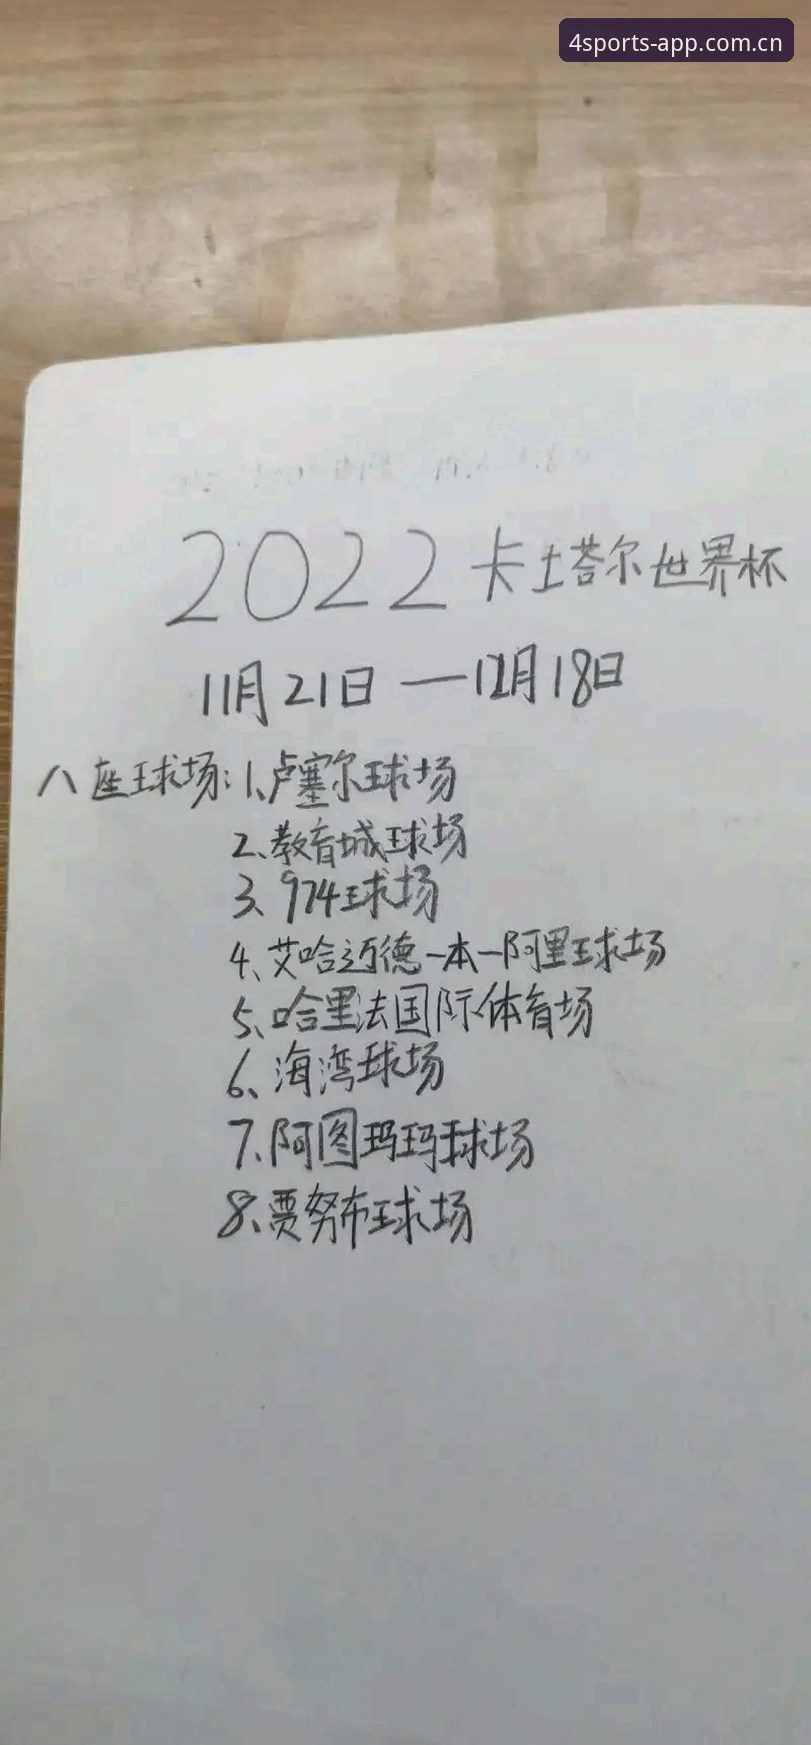 4sports-app.com.cn
2022卡塔尔世界杯
11月21日—12月18日
八座球场:1、卢塞尔球场
2、教育城球场
3、974球场
4、艾哈迈德-本-阿里球场
5、哈里法国际体育场
6、海湾球场
7、阿图玛玛球场
8、贾努布球场